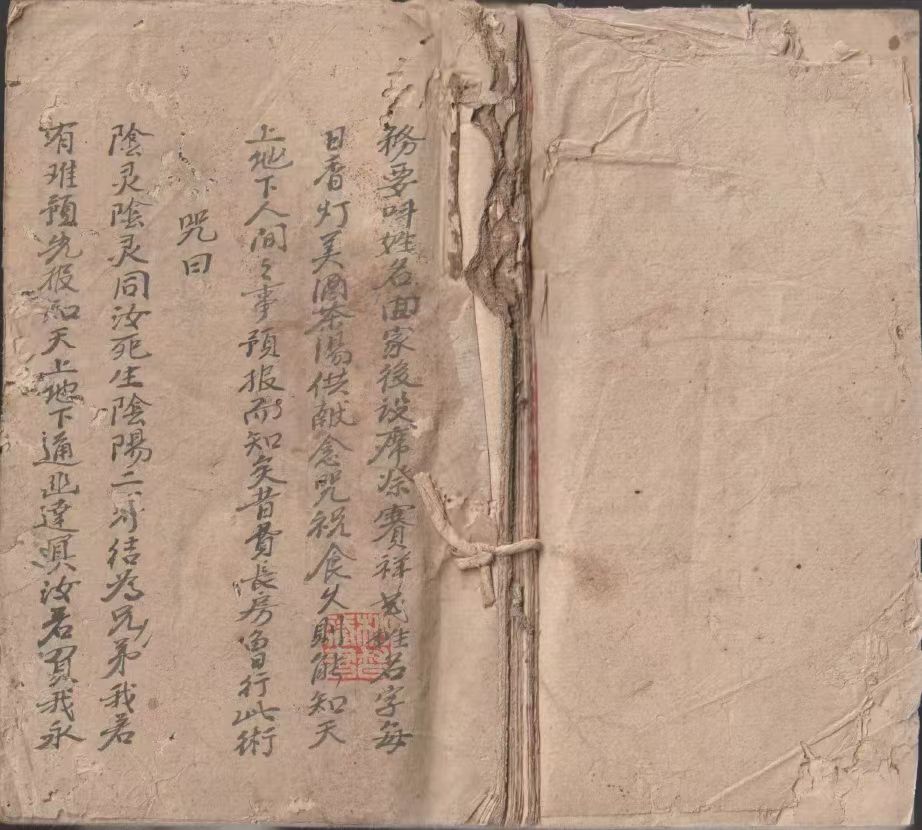 務要叫姓名回家後設席祭賽祥其姓名字每
日香灯美酒茶湯供献念咒祝食久則能知天
上地下人间之事預报耐知矣昔費長房曾行此術
咒曰
陰灵陰灵同汝死生陰陽二字结為兄弟我若
有难預先报知天上地下通幽達冥汝若負我永